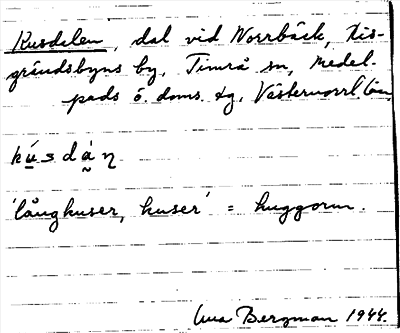 Kusdalen, dal vid Norrbäck, Tis-
gråndsbyns by, Timrå sn, Medel-
pads ö. doms. dg, Västernorrl. län
kúsdáŋ
'långkuser, kuser' = huggorm.
Bergman 1944.